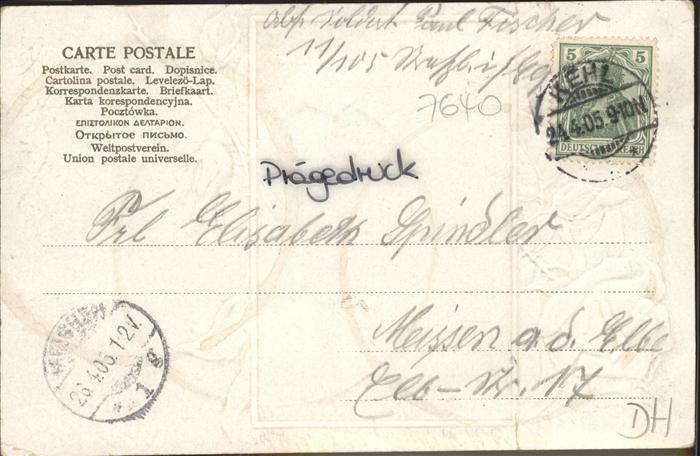 Abs. Soldat Paul Fischer
11/105 Straßb. i/
CARTE POSTALE
Postkarte. Post card. Dopisnice.
Cartolina postale. Levelező-Lap.
Korrespondenzkarte. Briefkaart.
Karta korespondencyjna.
Pocztówka.
ΕΠΙΣΤΟΛΙΚΟΝ ΔΕΛΤΑΡΙΟΝ.
Открытое письмо.
Weltpostverein.
Union postale universelle.
7640
5 5
DEUTSCHES REICH
KEHL
24.4.05.9-10N
Prägedruck
Frl Elisabeth Spindler
Meissen a. d. Elbe
Elb-Str. 17
MEISSEN
26.4.05.1-2V.
* 1 e
DH